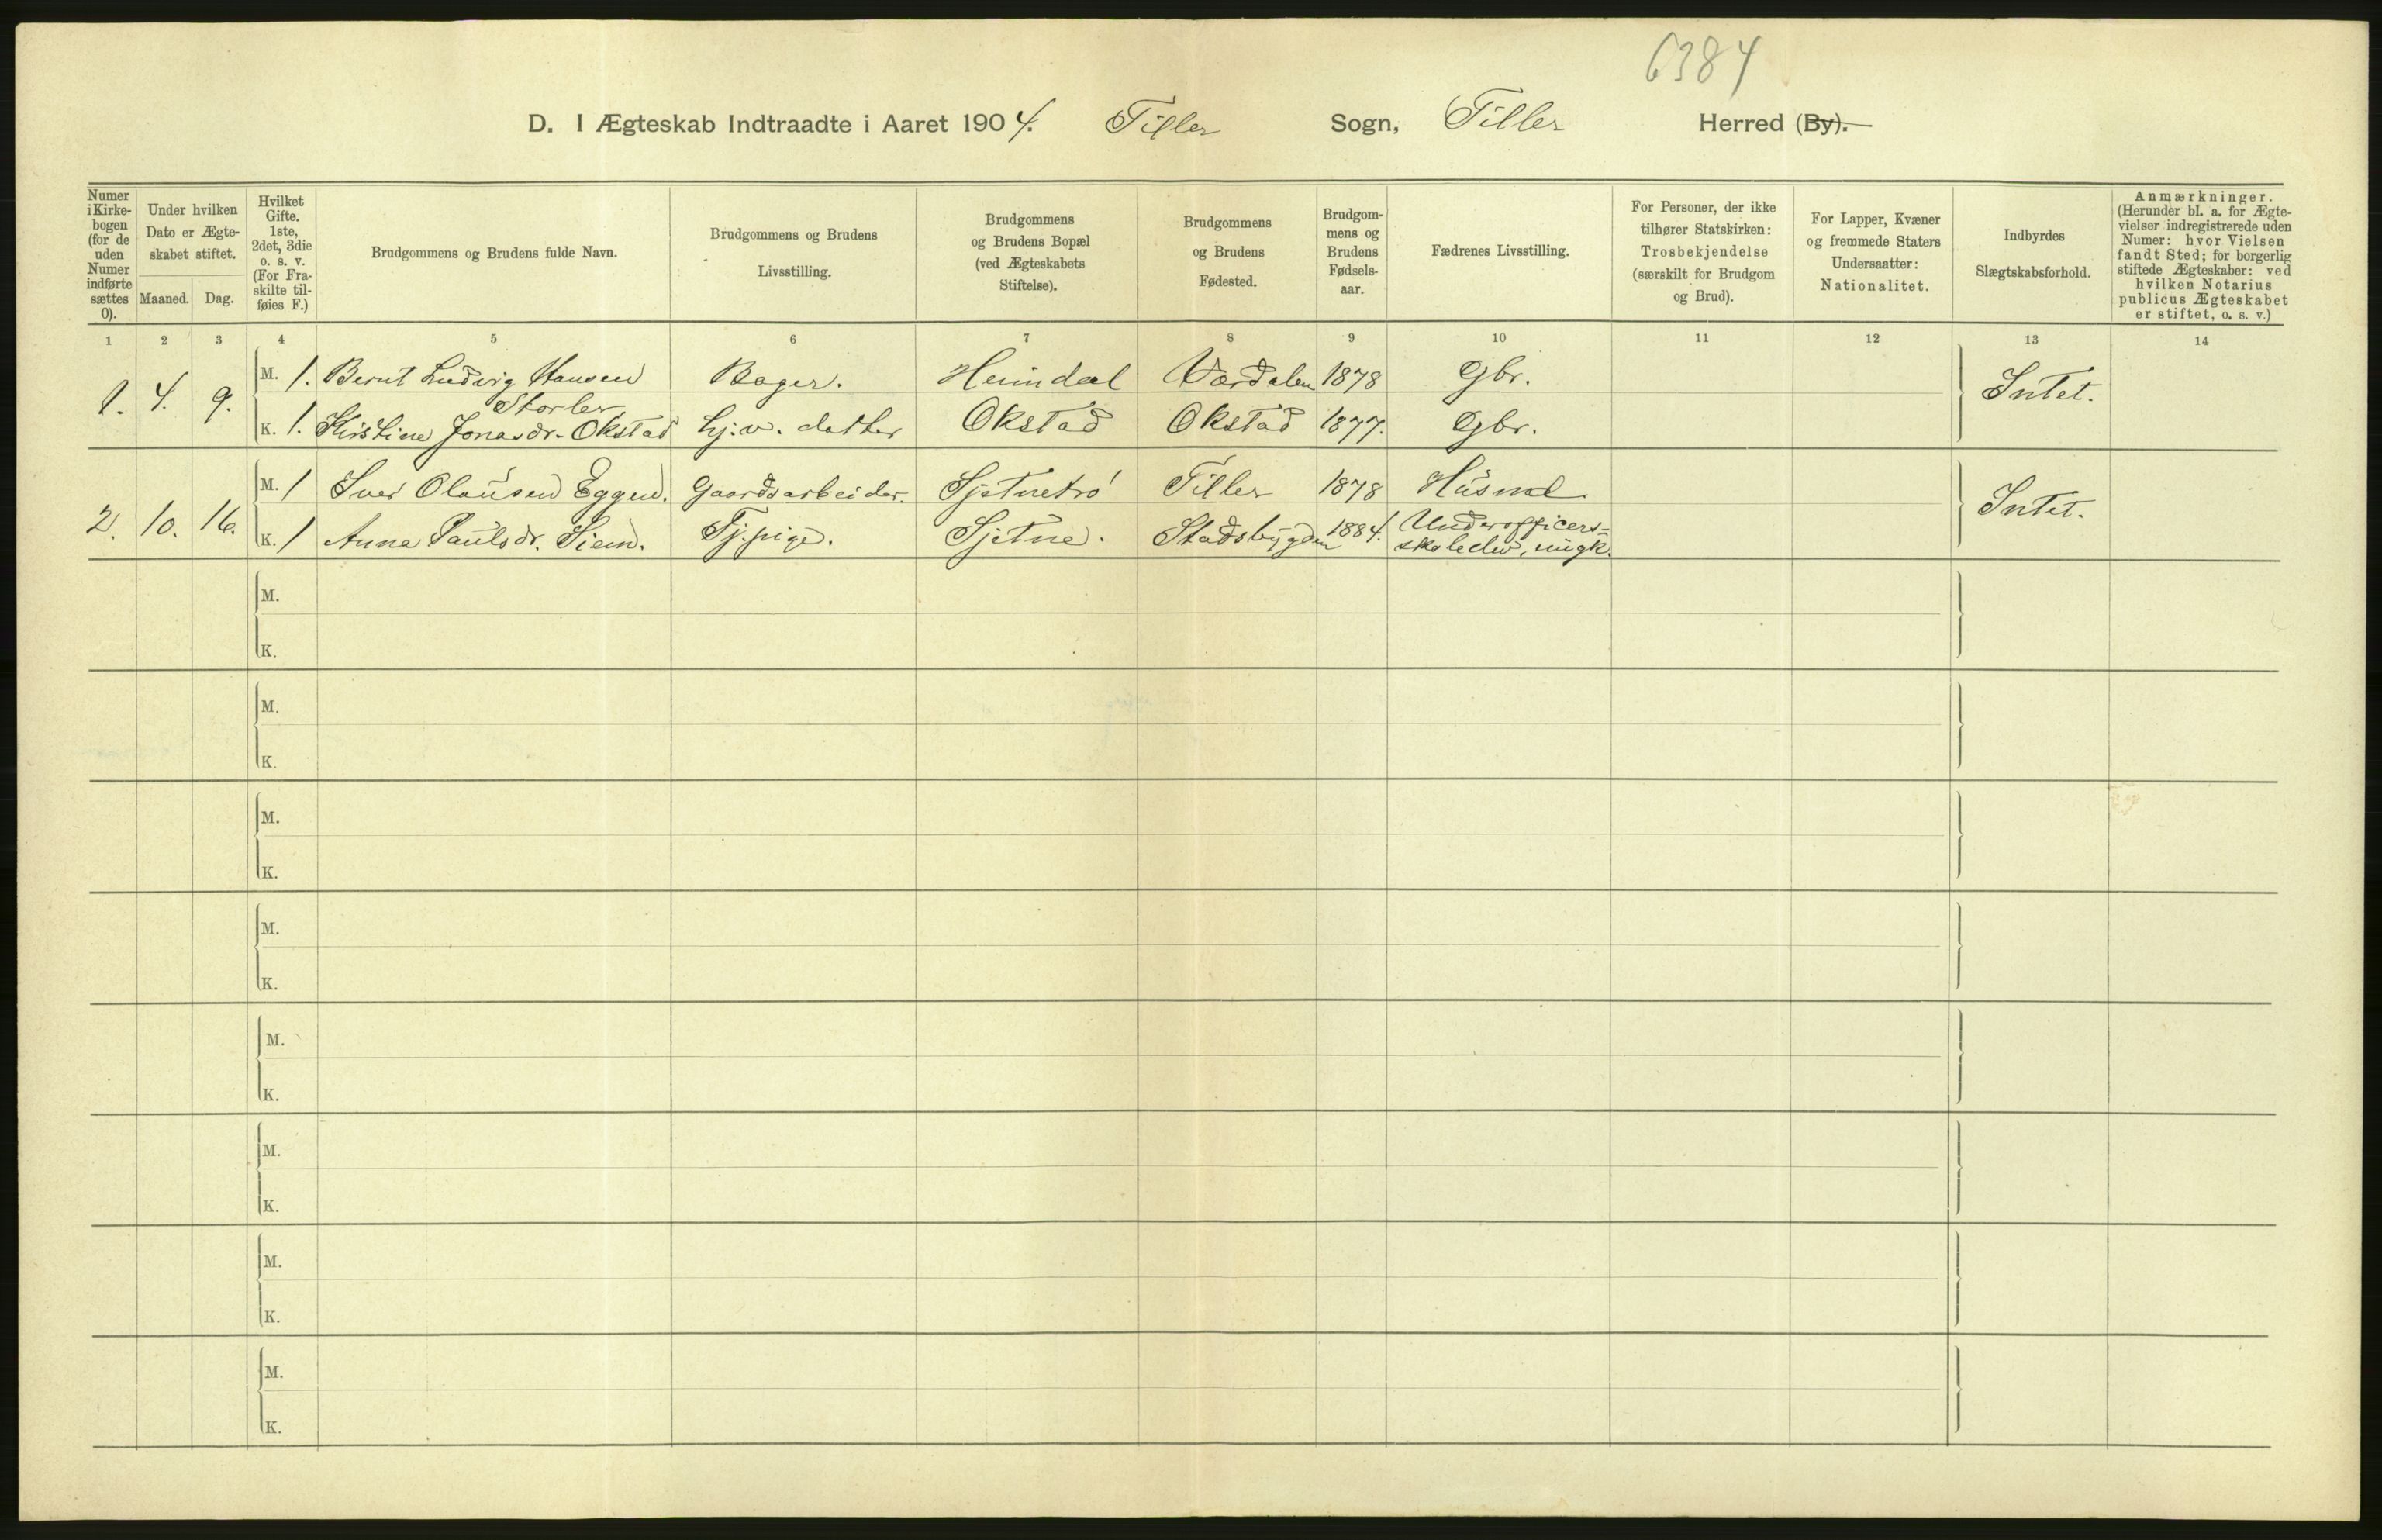 6384
D. I Ægteskab Indtraadte i Aaret 1904. Tiller Sogn, Tiller Herred (By).
Numer i Kirke-bogen (for de uden Numer indførte sættes 0).
Under hvilken Dato er Ægte-skabet stiftet.
Maaned. Dag.
Hvilket Gifte. 1ste, 2det, 3die o. s. v. (For Fra-skilte til-føies F.)
Brudgommens og Brudens fulde Navn.
Brudgommens og Brudens Livsstilling.
Brudgommens og Brudens Bopæl (ved Ægteskabets Stiftelse).
Brudgommens og Brudens Fødested.
Brudgom-mens og Brudens Fødsels-aar.
Fædrenes Livsstilling.
For Personer, der ikke tilhører Statskirken: Trosbekjendelse (særskilt for Brudgom og Brud).
For Lapper, Kvæner og fremmede Staters Undersaatter: Nationalitet.
Indbyrdes Slægtskabsforhold.
Anmærkninger. (Herunder bl. a. for Ægte-vielser indregistrerede uden Numer: hvor Vielsen fandt Sted; for borgerlig stiftede Ægteskaber: ved hvilken Notarius publicus Ægteskabet er stiftet, o. s. v.)
1 2 3 4 5 6 7 8 9 10 11 12 13 14
1. 4. 9. M. 1. Bernt Ludvig Hansen Bager. Heimdal Værdalen 1878 Gbr. Intet.
Storler
K. 1. Kristine Jonasdr. Okstad hj.v. datter Okstad Okstad 1877. Gbr.
2. 10. 16. M. 1 Iver Olausen Eggen. Gaardsarbeider. Sjetnetrø Tiller 1878 Husmd. Intet.
K. 1 Anna Paulsdr. Siem. Tj.pige. Sjetne. Stadsbygden 1884. Underofficers-
skoleelev, ungk.
M.
K.
M.
K.
M.
K.
M.
K.
M.
K.
M.
K.
M.
K.
M.
K.